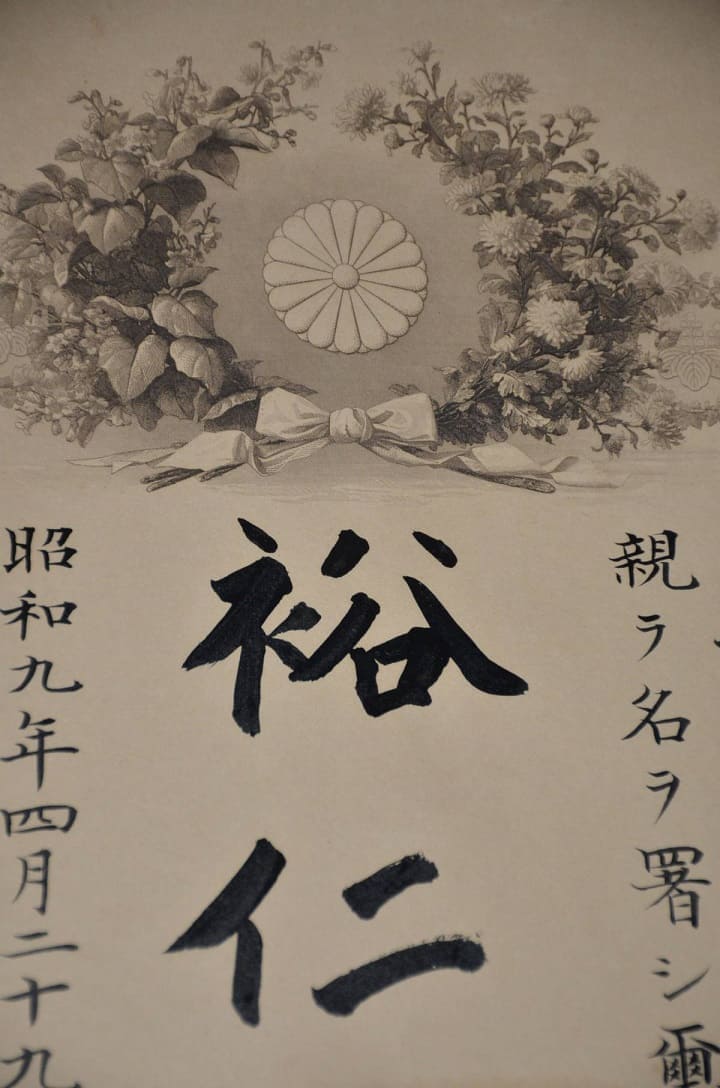 親ラ名ヲ署シ爾
裕仁
昭和九年四月二十九